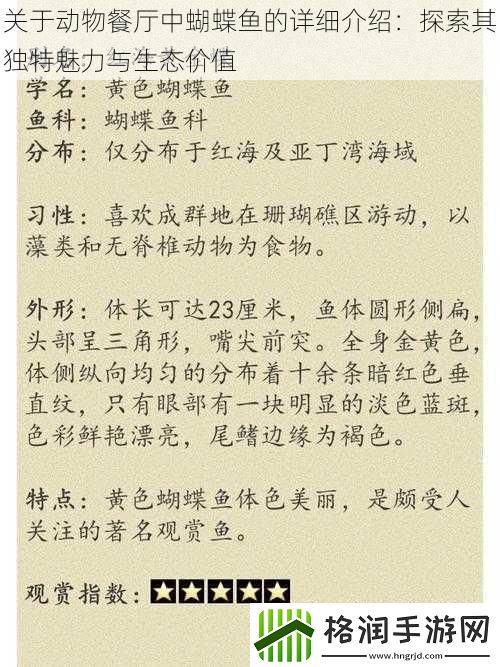 关于动物餐厅中蝴蝶鱼的详细介绍：探索其
独特魅力与生态价值
学名：黄色蝴蝶鱼
鱼科：蝴蝶鱼科
分布：仅分布于红海及亚丁湾海域
习性：喜欢成群地在珊瑚礁区游动，以
藻类和无脊椎动物为食物。
外形：体长可达23厘米，鱼体圆形侧扁，
头部呈三角形，嘴尖前突。全身金黄色，
体侧纵向均匀的分布着十余条暗红色垂
直纹，只有眼部有一块明显的淡色蓝斑，
色彩鲜艳漂亮，尾鳍边缘为褐色。
特点：黄色蝴蝶鱼体色美丽，是颇受人
关注的著名观赏鱼。
观赏指数：
格润手游网
www.hngrjd.com